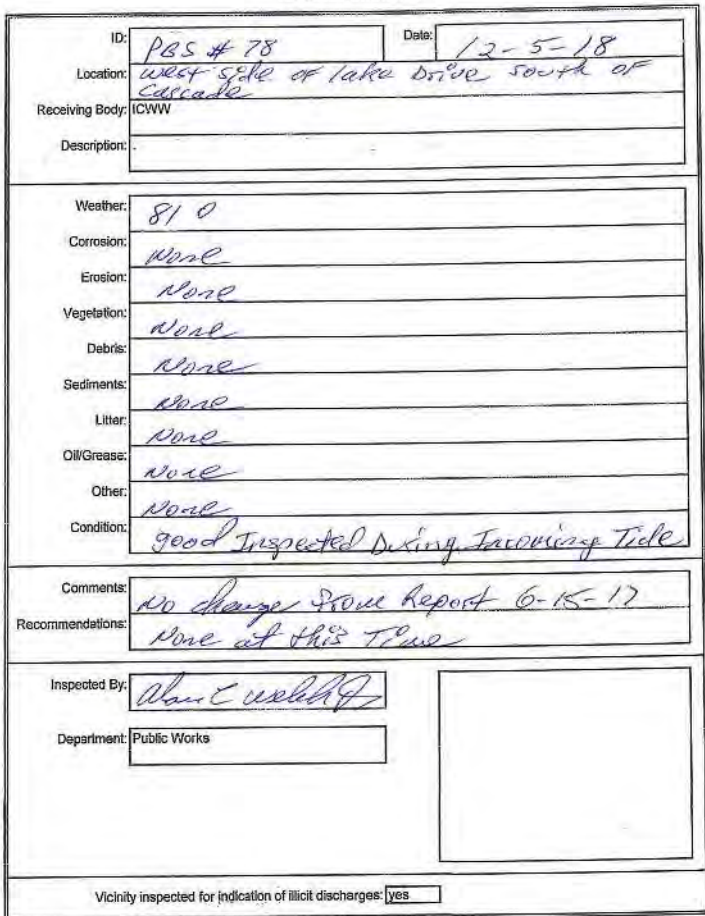 ID: PBS # 78 Date: 12-5-18
Location: west side of lake Drive South of
Cascade
Receiving Body: ICWW
Description: .
Weather: 81 0
Corrosion: None
Erosion: None
Vegetation: None
Debris: None
Sediments: None
Litter: None
Oil/Grease: None
Other: None
Condition: good Inspected During Incoming Tide
Comments: No change from Report 6-15-17
Recommendations: None at this Time
Inspected By:
Department: Public Works
Vicinity inspected for indication of illicit discharges: yes